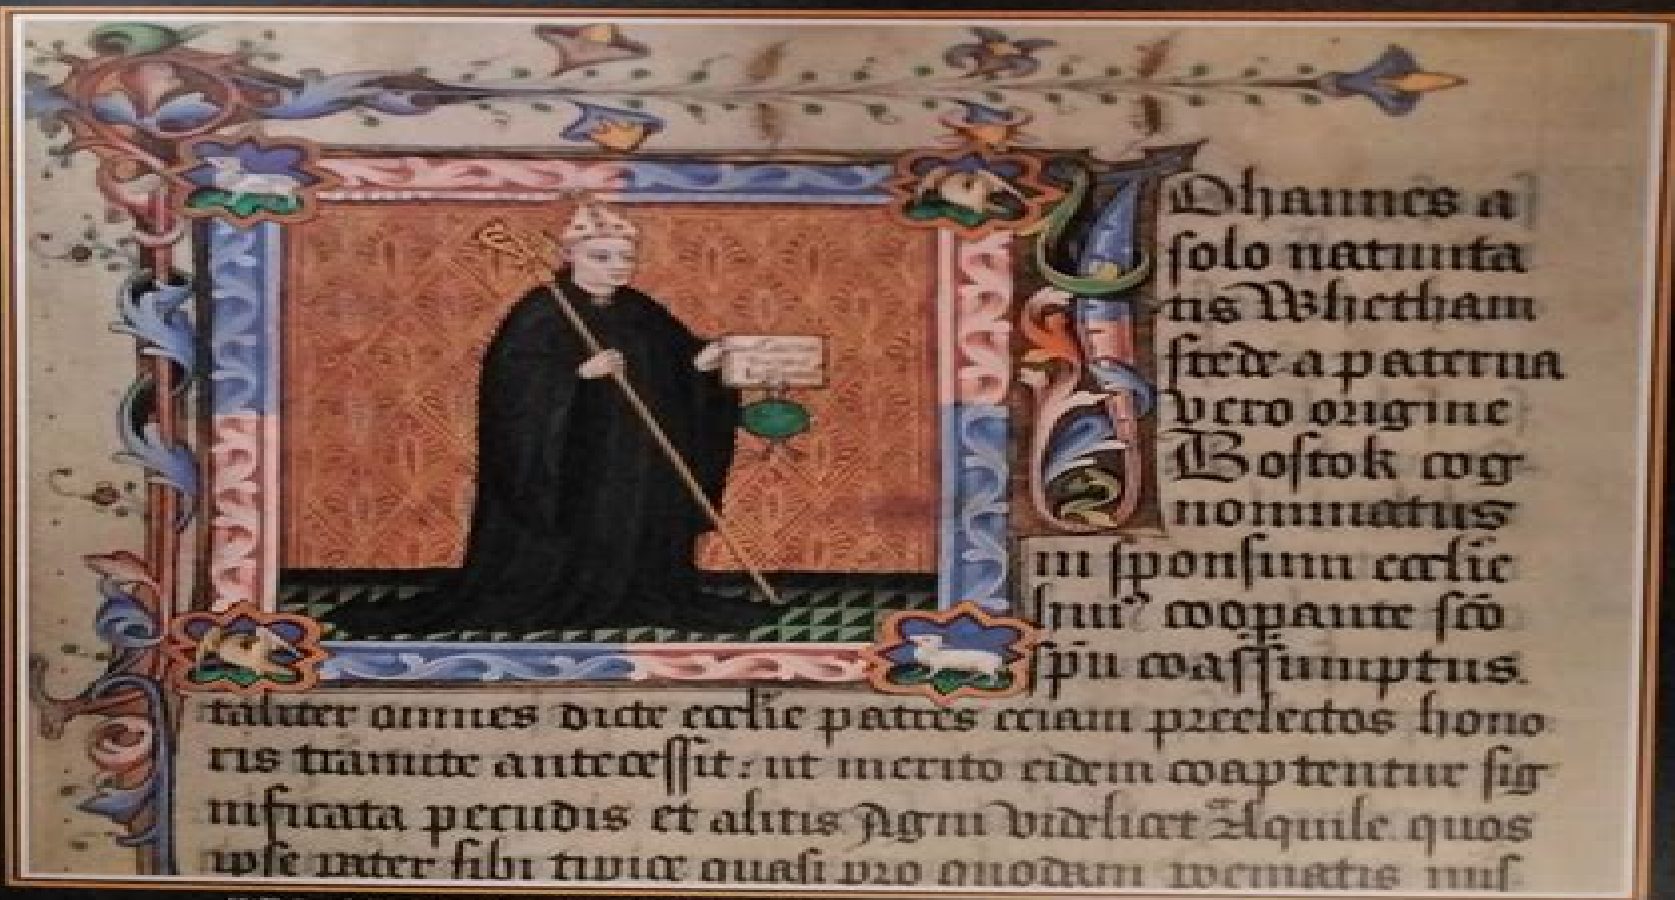 Johannes a
solo nativita
tis Whetham
stede a paterna
vero origine
Bostok cog
nominatus
in sponsum ecclie
hui⁹ coopante sco
spu coassumptus.
taliter omnes dicte ecclie patres eciam preelectos hono
ris tramite antecessit: ut merito eidem coaptentur sig
nificata pecudis et alitis Agni videlicet Aquile quos
ipse pater sibi tipice quasi pro quodam